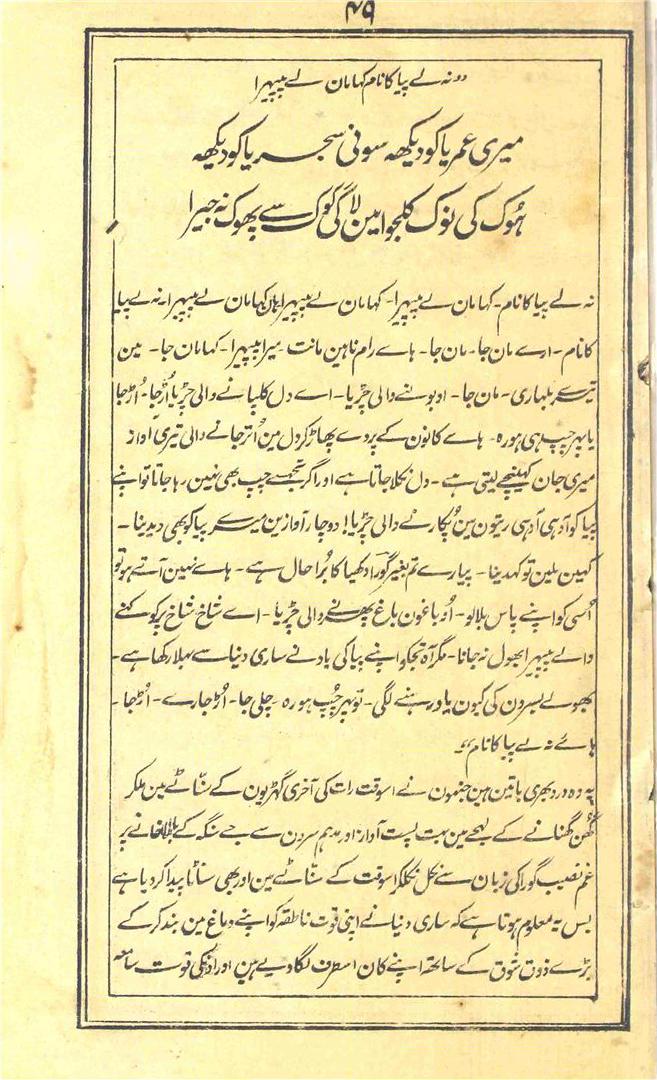 ۴۹
"نہ لے پیا کا نام کہا مان لے پپیہرا
میری عمریا کو دیکھہ سونی سجریا کو دیکھہ
ہُوک کی نوک کلیجوا مین لاگی کوک سے پھوک نہ جیرا
نہ لے پیا کا نام۔ کہا مان لے پپیہرا۔ کہا مان لے پپیہرا ہان کہا مان لے پپیہرا۔ نہ لے پیا
کا نام۔ ارے مان جا۔ مان جا۔ ہاے رام ناہین مانت میرا پپیہرا۔ کہا مان جا۔ مین
تیرے بلہاری۔ مان جا۔ او بولنے والی چڑیا۔ اے دل کلپانے والی چڑیا اُڑ جا۔ اُڑ جا
یا پہر چپ ہی ہو رہ۔ ہاے کانون کے پردے پھاڑ کر دل مین اُتر جانے والی تیری آواز
میری جان کہینچے لیتی ہے۔ دل نکلا جاتا ہے اور اگر تجھسے چپ بھی نہین رہا جاتا تو اپنے
پیا کو آدہی آدہی ریتون مین پُکارنے والی چڑیا! دو چار آوازین میرے پیا کو بھی دیدینا۔
کہین ملین تو کہدینا۔ پیارے تم بغیر گورا دکھیا کا بُرا حال ہے۔ ہاے نہین آتے ہو تو
اُسی کو اپنے پاس بلا لو۔ او باغون باغ پھرنے والی چڑیا۔ اے شاخ شاخ پر کوکنے
والے پپیہرا بھول نہ جانا۔ مگر آہ تجکو اپنے پیا کی یاد نے ساری دنیا سے بہلا رکھا ہے۔
بھولے بسرون کی کیون یاد رہنے لگی۔ تو پہر چُپ ہو رہ۔ چلی جا۔ اُڑ جا رے۔ اُڑ جا۔
ہاے نہ لے پیا کا نام"
یہ وہ درد بھری باتین ہین جنہون نے اسوقت رات کی آخری گھڑیون کے سنّاٹے مین ملکر
گُھن گھنانے کے لہجے مین بہت پست آواز اور مدہم سرون سے جے سنگہ کے بالاخانے پر
غم نصیب گورا کی زبان سے نکل نکلکر اسوقت کے سنّاٹے مین اور بھی سناٹا پیدا کر دیا ہے
بس یہ معلوم ہوتا ہے کہ ساری دنیا نے اپنی قوت ناطقہ کو اپنے دماغ مین بند کر کے
بڑے ذوق شوق کے ساتھہ اپنے کان اسطرف لگا دیے ہین اور اونکی قوت سامعہ